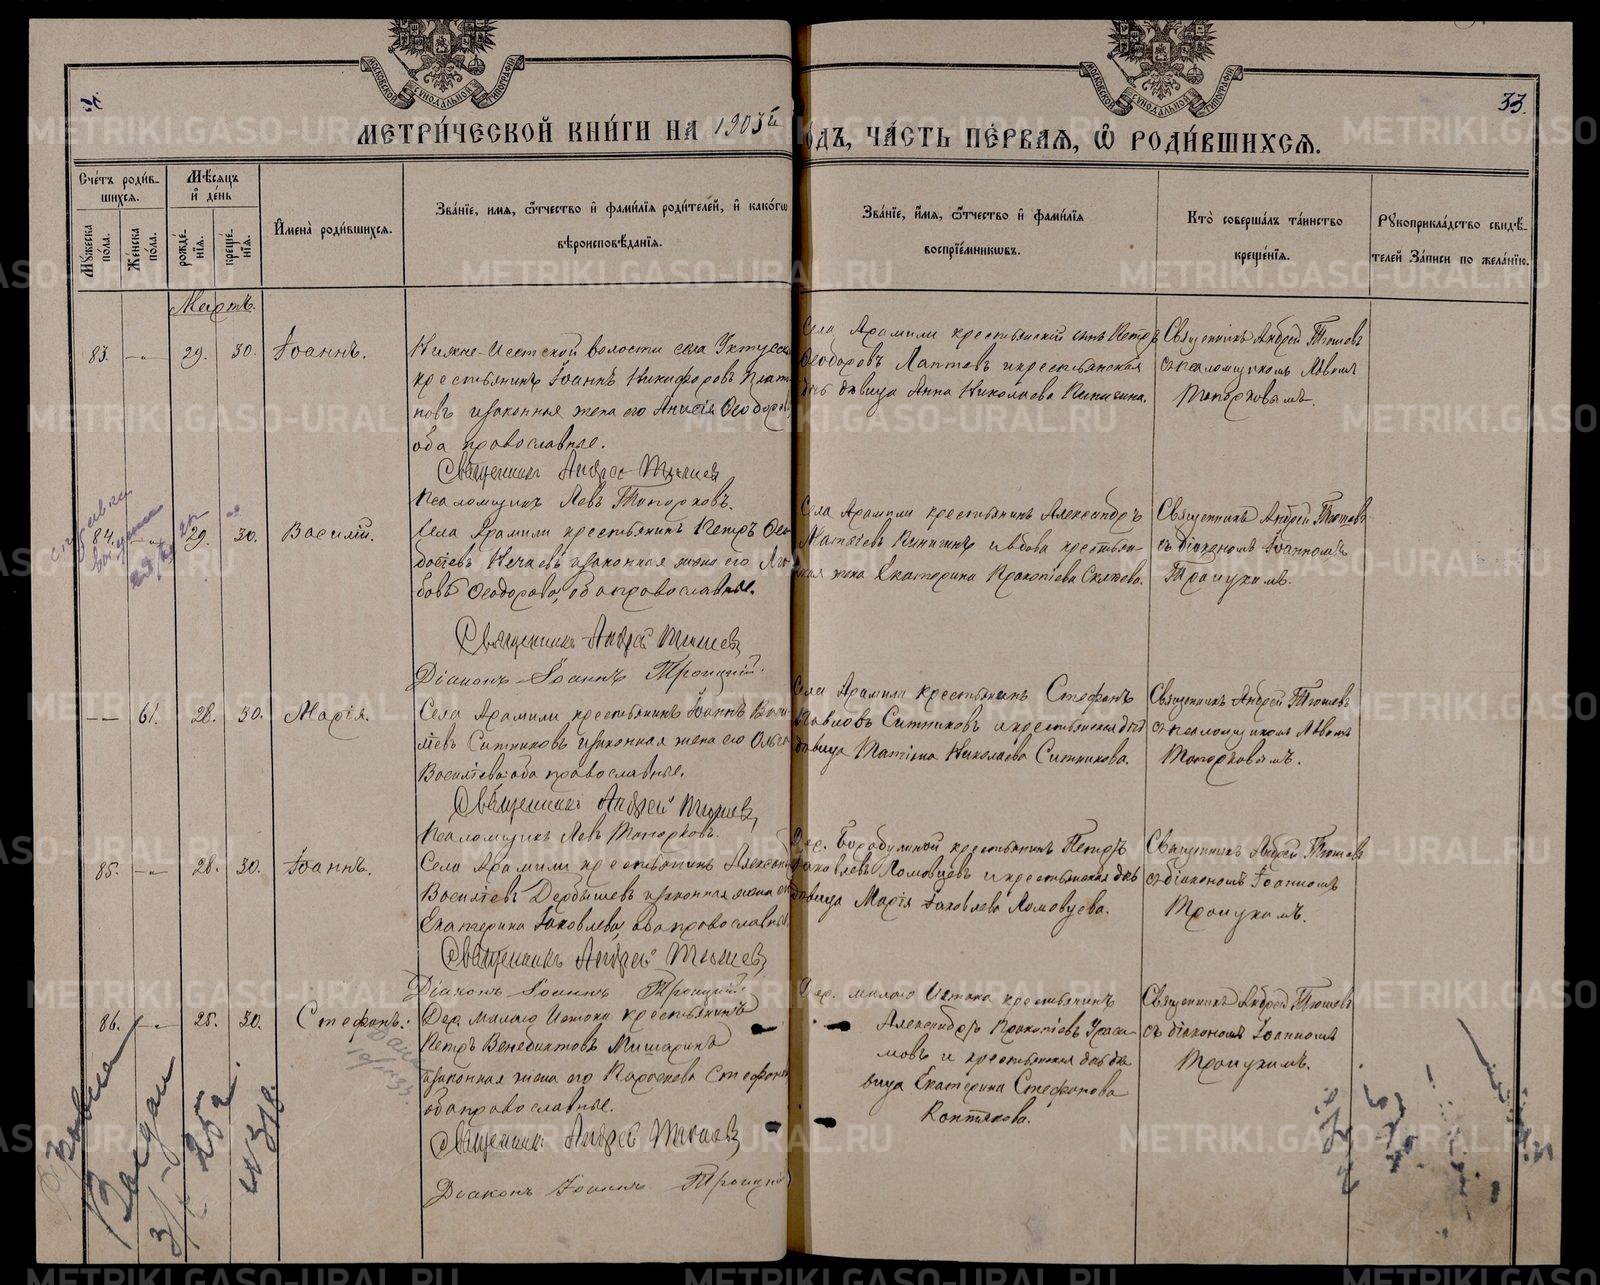 МОСКОВСКОЙ СѴНОДАЛЬНОЙ ТИПОГРАФІИ
МОСКОВСКОЙ СѴНОДАЛЬНОЙ ТИПОГРАФІИ
33.
МЕТРИ́ЧЕСКОЙ КНИ́ГИ НА 1903й
ОДЪ, ЧА́СТЬ ПЕ́РВАЯ, Ѡ҆ РОДИ́ВШИХСЯ.
Сче́тъ роди́в-
шихся.
Мꙋ́жеска по́ла.
Же́нска по́ла.
Мѣ́сяцъ и҆ де́нь
рожде́нїя.
креще́нїя.
И҆мена̀ роди́вшихся.
Зва́нїе, имя, ѿтчество и҆ фами́лїя роди́телей, и҆ како́гѡ
вѣроисповѣ́данїя.
Зва́нїе, и҆́мя, ѿтчество и҆ фами́лїя
воспрїе́мникѡвъ.
Кто̀ соверша́лъ та́инство
креще́нїя.
Рꙋкоприкла́дство свидѣ́-
телей За́писи по жела́нїю.
Мартъ.
83. 29. 30. Іоаннъ.
Нижне-Исетской волости села Уктусска
крестьянинъ Іоаннъ Никифоровъ Плат
новъ и законная жена его Анисія Ѳеодоро
оба православные.
Священникъ Андрей Тюшев
Псаломщикъ Левъ Топорковъ.
Села Арамили крестьянскій сынъ Петръ
Ѳеодоровъ Лаптевъ и крестьянская
дочь дѣвица Анна Николаева Кинигина.
Священникъ Андрей Тюшевъ
с псаломщикомъ Львомъ
Топорковымъ.
84. 29. 30. Василій.
Села Арамили крестьянинъ Петръ Ѳео
досіевъ Нечаевъ и законная жена его Лю
бовь Ѳеодорова, оба православные.
Священникъ Андрей Тюшев
Діаконъ Іоаннъ Троицкій.
Села Арамили крестьянинъ Александръ
Матѳіевъ Кинигинъ и вдова крестьян
ская жена Екатерина Прокопіева
Священникъ Андрей Тюшевъ
съ діакономъ Іоанномъ
Троицкимъ.
61. 28. 30. Марія.
Села Арамили крестьянинъ Іоаннъ Васи
ліевъ Ситниковъ и законная жена его Ольга
Василіева оба православные.
Священникъ Андрей Тюшев
Псаломщикъ Левъ Топорковъ.
Села Арамили крестьянинъ Стефанъ
Павловъ Ситниковъ и крестьянская дочь
дѣвица Татіана Николаева Ситникова.
Священникъ Андрей Тюшевъ
с псаломщикомъ Львомъ
Топорковымъ.
85. 28. 30. Іоаннъ.
Села Арамили крестьянинъ Александ
Василіевъ Дербышевъ и законная жена его
Екатерина Іаковлева, оба православные
Священникъ Андрей Тюшев
Діаконъ Іоаннъ Троицкій.
Дер. Бородулиной крестьянинъ Петръ
Іаковлевъ Ломовцевъ и крестьянская дочь
дѣвица Марія Іаковлева Ломовцева.
Священникъ Андрей Тюшевъ
съ діакономъ Іоанномъ
Троицкимъ.
86. 25. 30. Стефанъ.
Дер. Малаго Истока крестьянинъ
Петръ Венедиктовъ Мишаринъ
и законная жена его Параскева Стефанов
оба православные.
Священникъ Андрей Тюшев
Діаконъ Іоаннъ Троицкій
Дер. Малаго Истока крестьянинъ
Александръ Прокопіевъ Ураси-
мовъ и крестьянская дочь дѣ
вица Екатерина Стефанова
Коптякова.
Священникъ Андрей Тюшевъ
съ діакономъ Іоанномъ
Троицкимъ.
METRIKI.GASO-URAL.RU